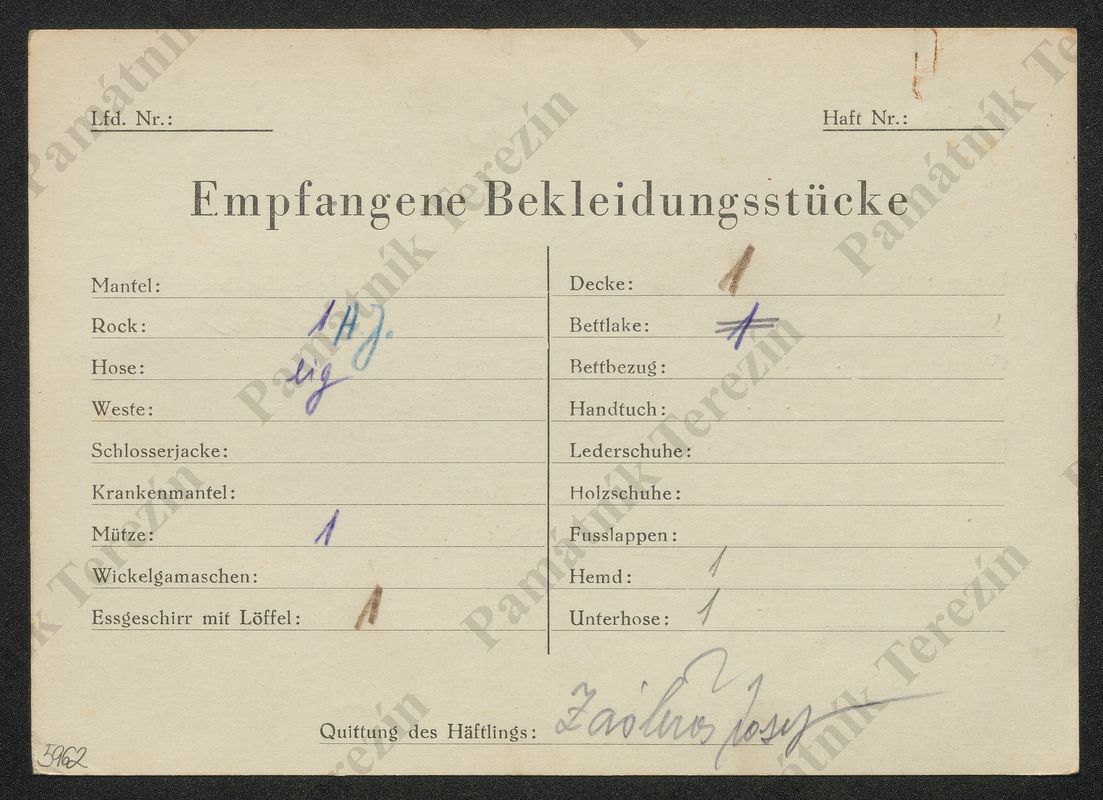 Lfd. Nr.:
Haft Nr.:
Empfangene Bekleidungsstücke
Mantel:
Rock: 1 H.J.
Hose: eig
Weste:
Schlosserjacke:
Krankenmantel:
Mütze: 1
Wickelgamaschen:
Essgeschirr mit Löffel: 1
Decke: 1
Bettlake: 1
Bettbezug:
Handtuch:
Lederschuhe:
Holzschuhe:
Fusslappen:
Hemd: 1
Unterhose: 1
Quittung des Häftlings: Josef
5962
Památník Terezín